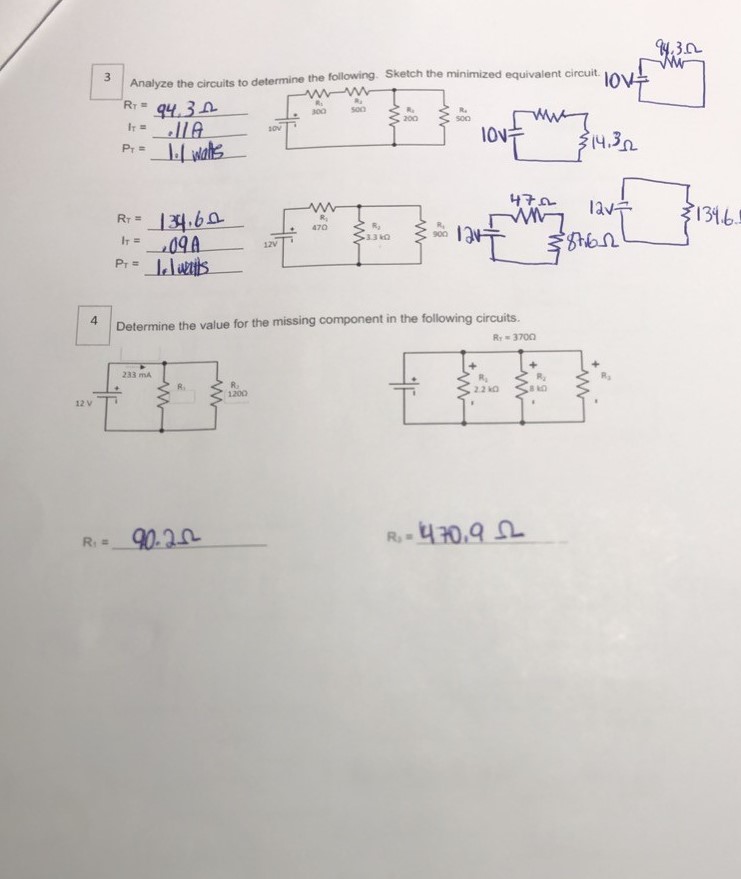 94.3Ω
3 Analyze the circuits to determine the following. Sketch the minimized equivalent circuit. 10V
RT = 94.3 Ω
IT = .11A
PT = 1.1 watts
10V
R₁ 30Ω
R₂ 50Ω
R₃ 20Ω
R₄ 50Ω
10V 14.3Ω
RT = 134.6Ω
IT = .09A
PT = 1.1 watts
12V
R₁ 47Ω
R₂ 3.3 kΩ
R₃ 90Ω
12V 47Ω 87.6Ω
12V 134.6
4 Determine the value for the missing component in the following circuits.
RT = 370Ω
233 mA
12 V
R₁
R₂ 120Ω
+ + +
R₁ 2.2 kΩ
R₂ 8 kΩ
R₃
- - -
R₁ = 90.2Ω
R₃ = 470.9 Ω